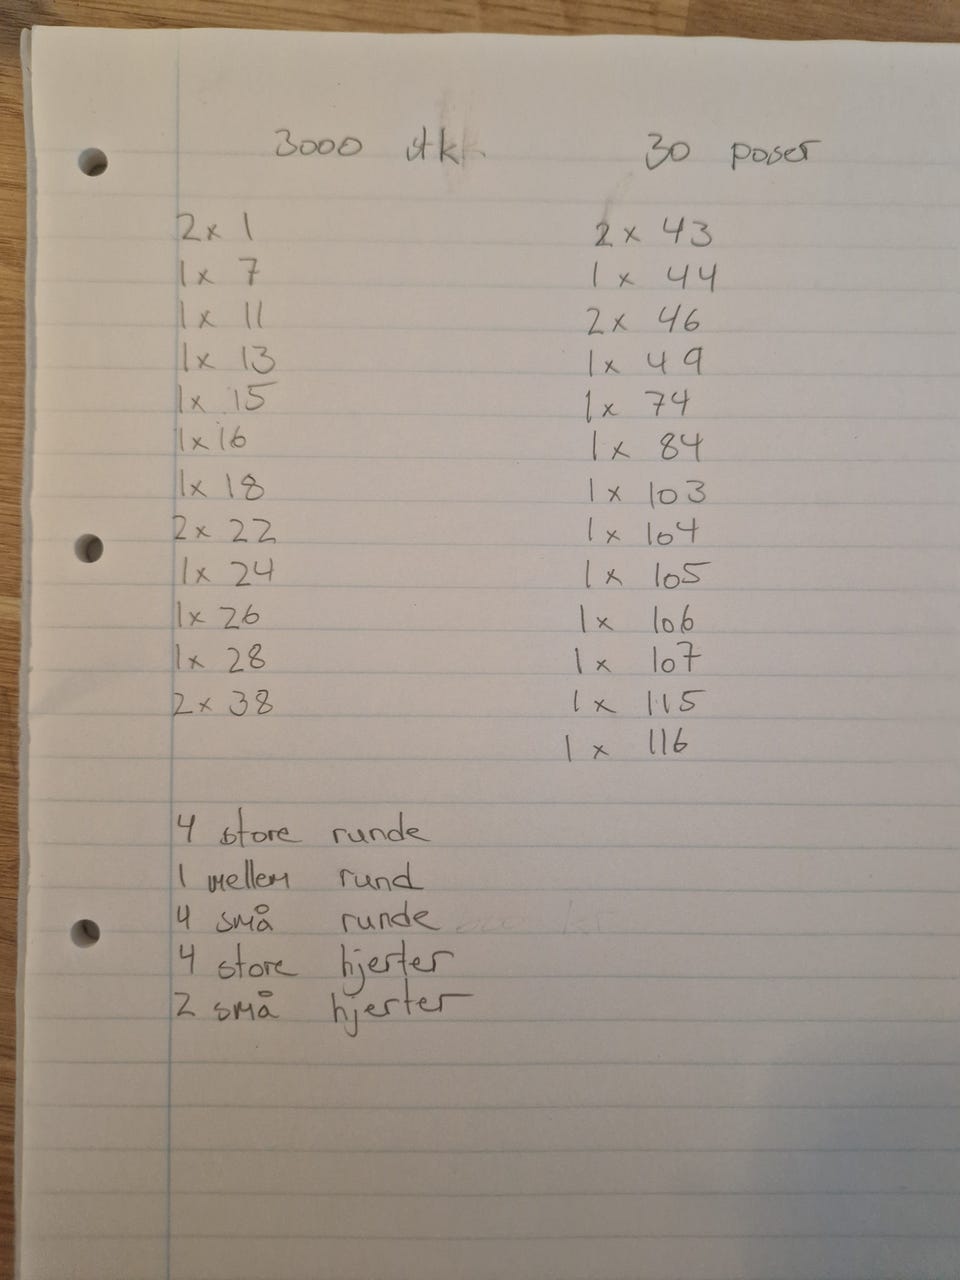 3000 stk
30 poser
2x 1
1x 7
1x 11
1x 13
1x 15
1x 16
1x 18
2x 22
1x 24
1x 26
1x 28
2x 38
2x 43
1x 44
2x 46
1x 49
1x 74
1x 84
1x 103
1x 104
1x 105
1x 106
1x 107
1x 115
1x 116
4 store runde
1 mellem rund
4 små runde
4 store hjerter
2 små hjerter